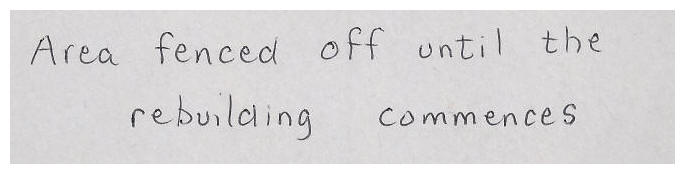 Area fenced off until the
rebuilding commences